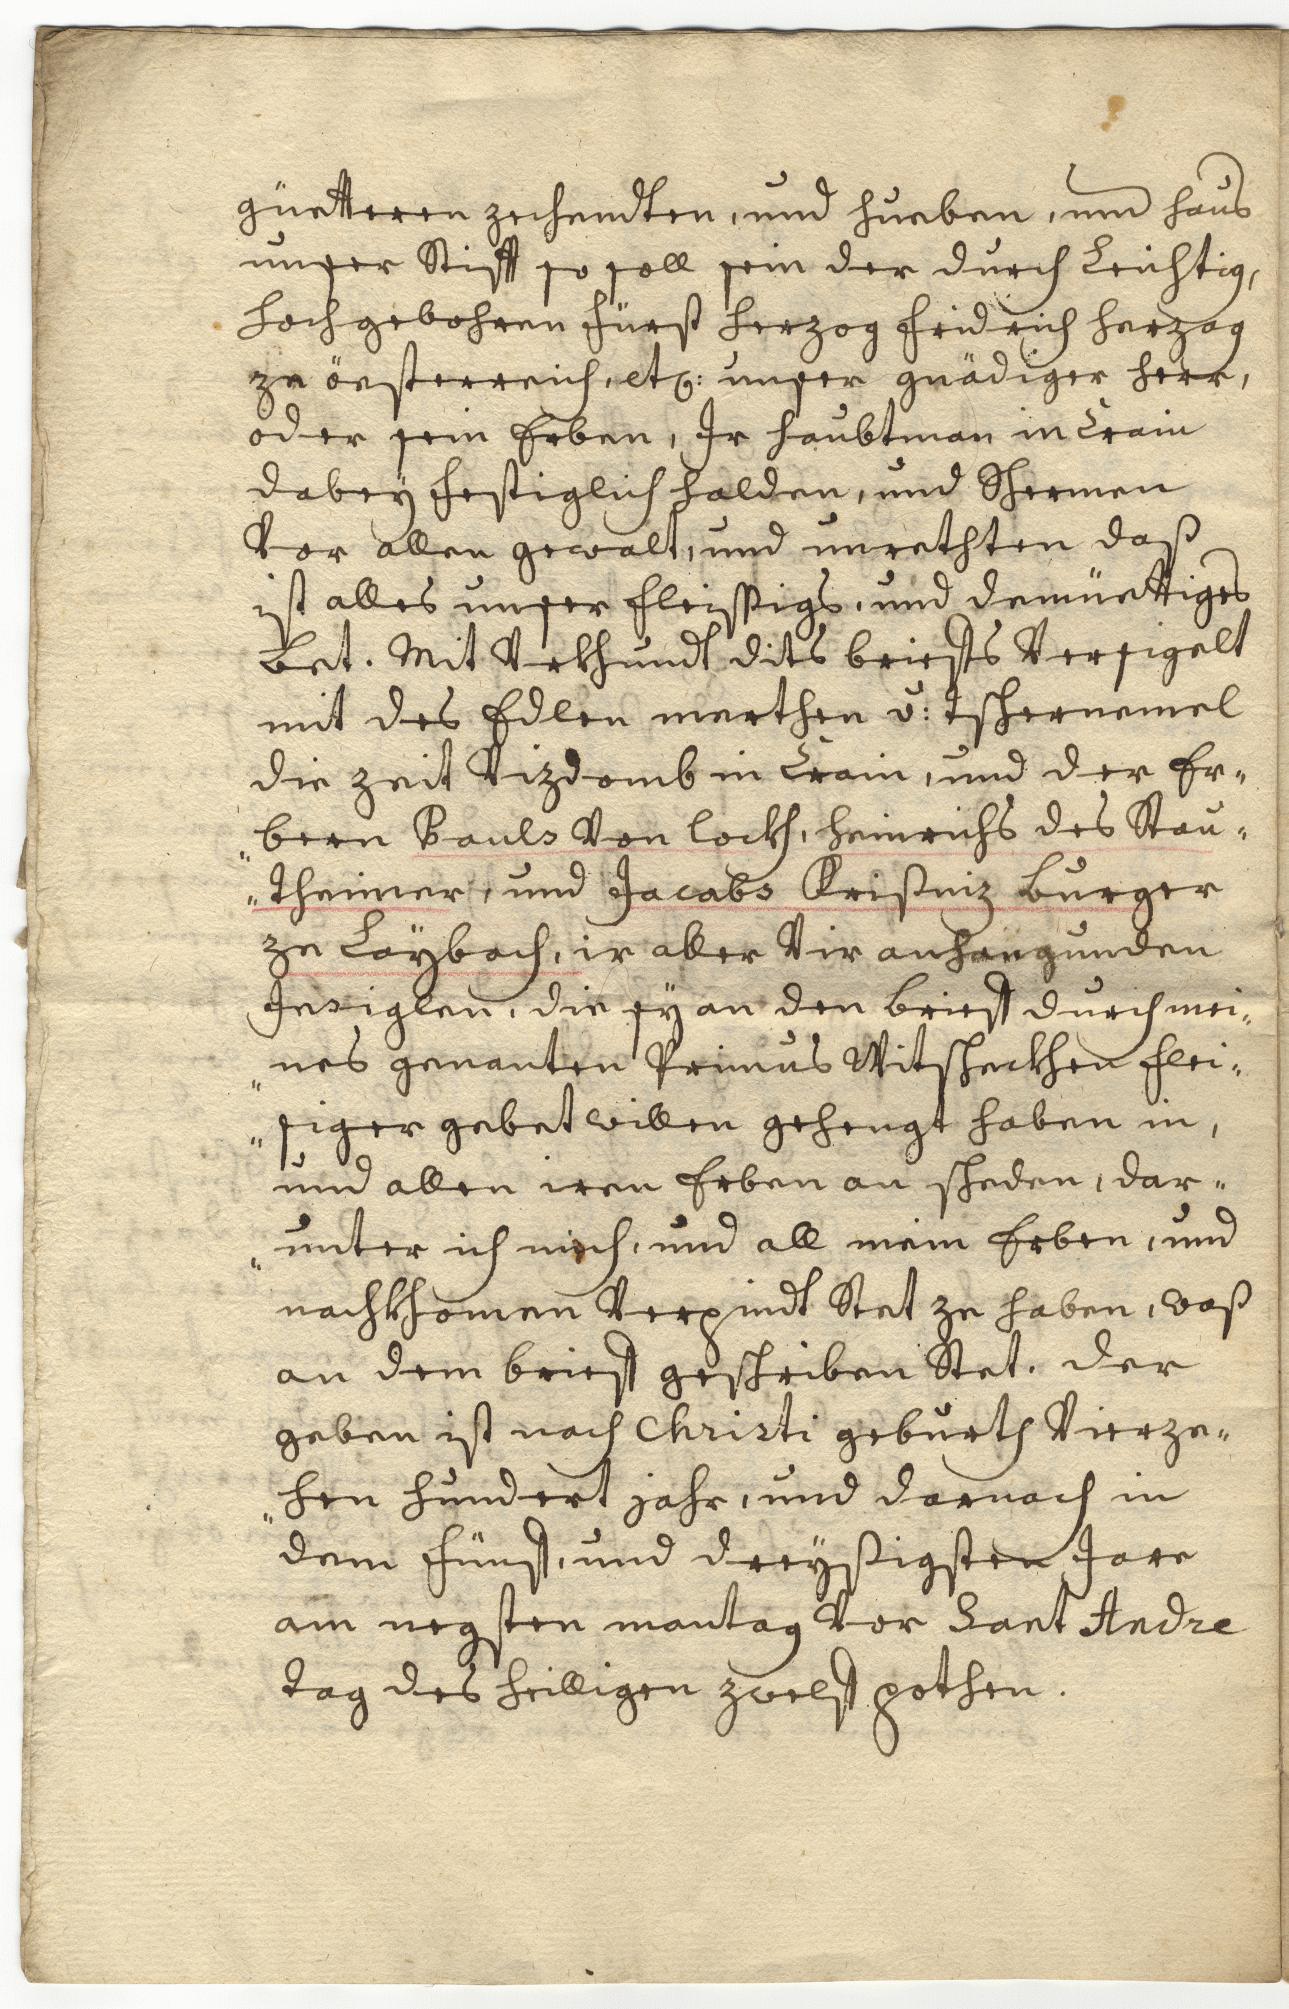 güetteren zechendten, und hueben, und haus
unser Stifft so soll sein der durch Leichtig,
hochgebohren fürst herzog fridrich herzog
ze öesterreich, etc: unser gnädiger herr,
oder sein Erben, Ir haubtman in Crain
dabey festiglich halden, und Schermen
Vor allen gewalt, und unrechten daß
ist alles unser fleissigs, und demüettiges
Bet. Mit Vrkhundt dits brieffs Versigelt
mit des Edlen merthen v: tschernemel
die zeit Vizdomb in Crain, und der Er-
"bern Pauls Von lockh, heinrichs des Stau-
"theimer, und Jacobs Krißniz burger
ze Laybach, ir aller Vir anhangunden
Insiglen, die sy an den brieff durch mei-
"nes genanten Primus Witscheckhen flei-
"siger gebet willen gehengt haben in,
und allen iren Erben an scheden, dar-
"unter ich mich, und all mein Erben, und
nachkhomen Verpindt Stet ze haben, waß
an dem brieff geschriben Stet. der
geben ist nach Christi geburth Vierze-
"hen hundert jahr, und darnach in
dem fünff, und dreyßigsten Jare
am negsten montag Vor Sant Andre
tag des heilligen zwelff pothen.